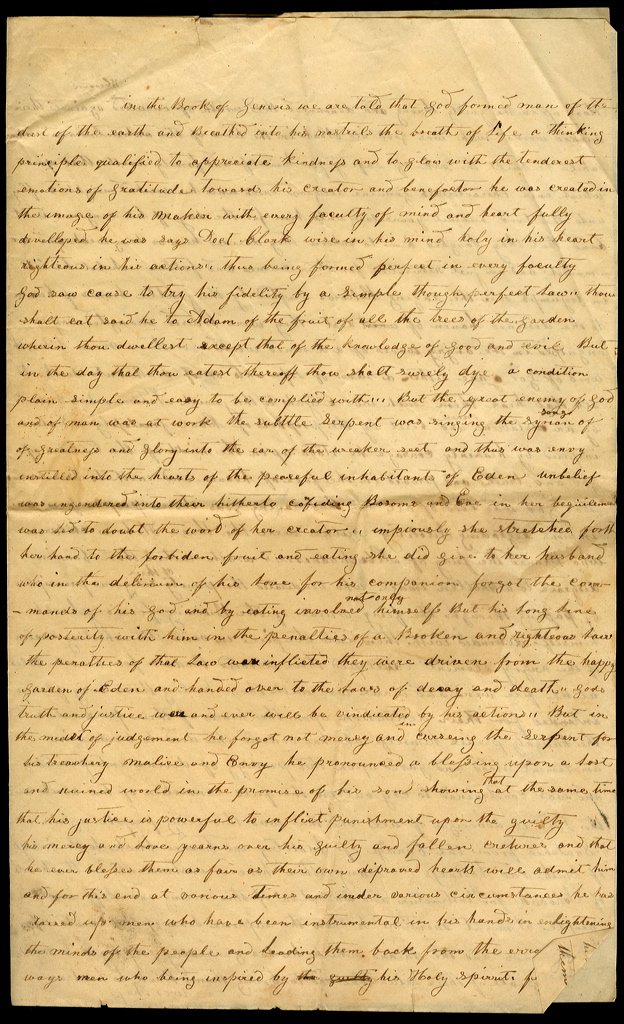 in the Book of Genesis we are told that god formed man of the
dust of the earth and Breathed into his nostrils the breath of Life a thinking
principle qualified to appreciate kindness and to glow with the tenderest
emotions of gratitude towards his creator and benefactor he was created in
the image of his maker with every faculty of mind and heart fully
divelloped he was says Doct. Clark wise in his mind holy in his heart
righteous in his actions" thus being formed perfect in every faculty
God saw cause to try his fidelity by a simple though perfect law" thou
shalt eat said he to Adam of the fruit of all the trees of the garden
wherin thou dwellest except that of the knowledge of good and evil But
in the day that thou eatest thereoff thou shalt surely dye a condition
plain simple and easy to be complied with" But the great enemy of God
and of man was at work the subttle serpent was singing the syrian song of
of greatness and glory into the ear of the weaker sect and thus was envy
instilled into the hearts of the peaceful inhabitants of Eden unbelief
was ingendered into their hitherto cofiding Bosoms and Eve in her beguilement
was led to doubt the word of her creator" impiously she stretched forth
her hand to the forbiden fruit and eating she did give to her husband
who in the delirium of his love for his companion forgot the com-
-mands of his god and by eating involved not only himself But his long line
of posterity with him in the penalties of a Broken and righteous law
the penalties of that law was inflicted they were driven from the happy
garden of Eden and handed over to the laws of decay and death" gods
truth and justice were and ever will be vindicated by his actions" But in
the midst of judgement he forgot not mercy and curseing the Serpent for
his treachery malice and Envy he pronounced a blessing upon a lost
and ruined world in the promise of his son showing that at the same time
that his justice is powerful to inflict punishment upon the guilty
his mercy and love yearns over his guilty and fallen cretures and that
he ever blesses them as fair as their own depraved hearts will admit him
and for this end at various times and under various circumstances he has
raised up men who have been instrumental in his hands in enlightening
the minds of the people and leading them back from the erro
ways men who being inspired by the guilty his Holy spirit f
them